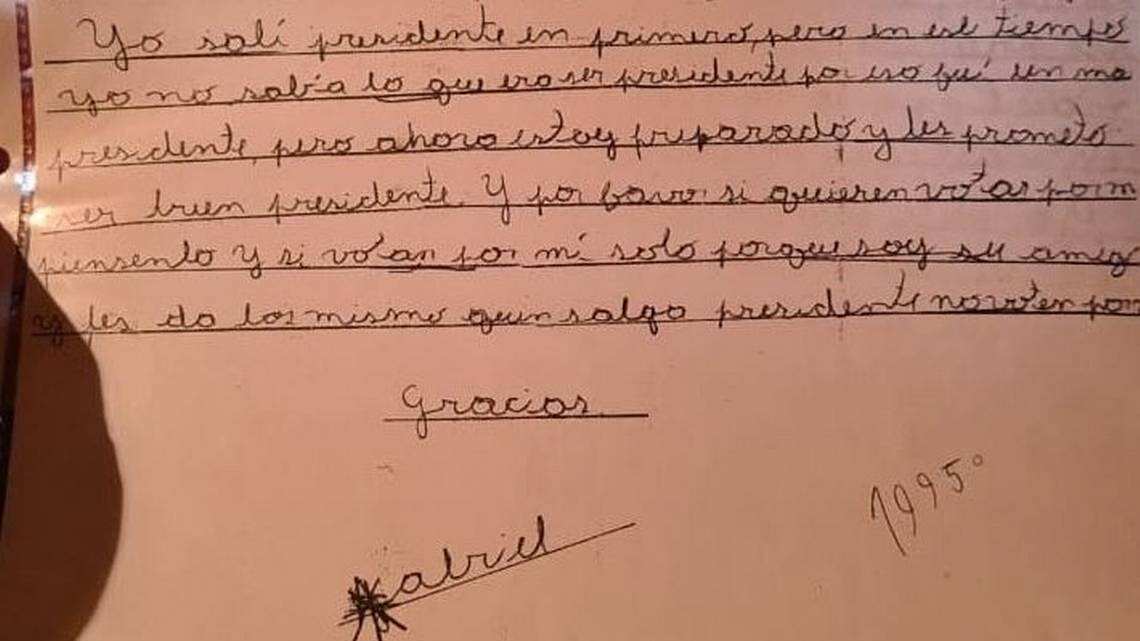 Yo salí presidente en primero, pero en ese tiempo
yo no sabía lo que era ser presidente por eso fuí un ma
presidente, pero ahora estoy preparado y les prometo
ser buen presidente. Y por favor si quieren votar por m
piensenlo y si votan por mí solo porque soy su amig
y les da los mismo quien salga presidente no voten por
Gracias
Gabriel
1995